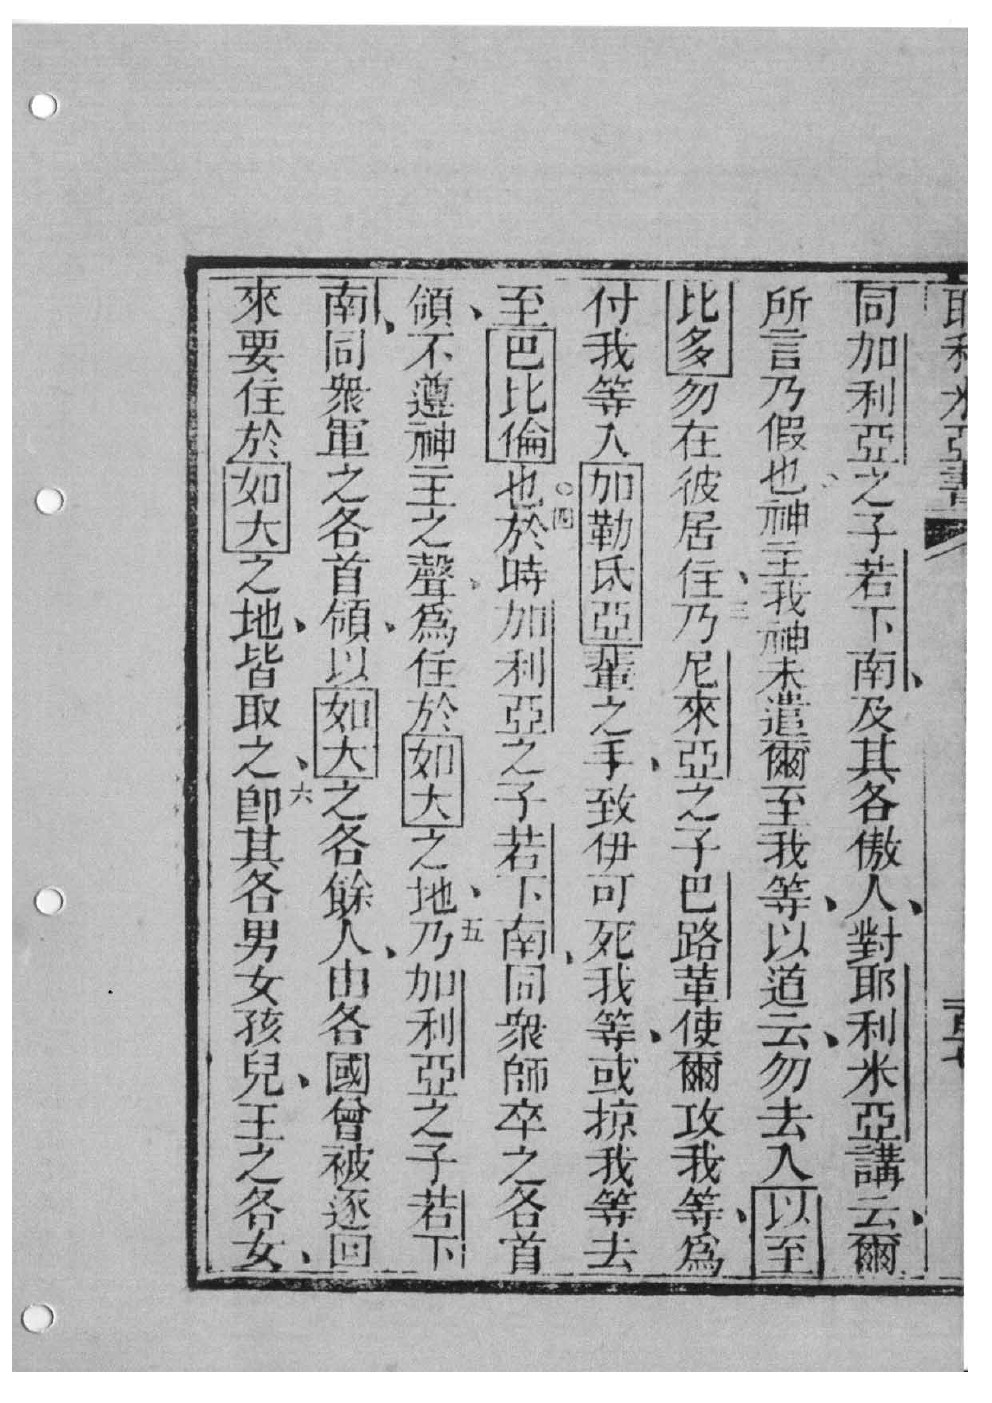 耶利米亞書
同加利亞之子若下南、及其各傲人、對耶利米亞講云、爾
所言乃假也、神主我神未遣爾至我等、以道云、勿去入以至
比多勿在彼居住、三乃尼來亞之子巴路革使爾攻我等、爲
付我等入加勒氐亞輩之手、致伊可死我等、或掠我等去
至巴比倫也。四於時加利亞之子若下南、同衆師卒之各首
領、不遵神主之聲、爲住於如大之地、五乃加利亞之子若下
南、同衆軍之各首領、以如大之各餘人、由各國曾被逐回
來要住於如大之地、皆取之、六卽其各男女孩兒、王之各女、